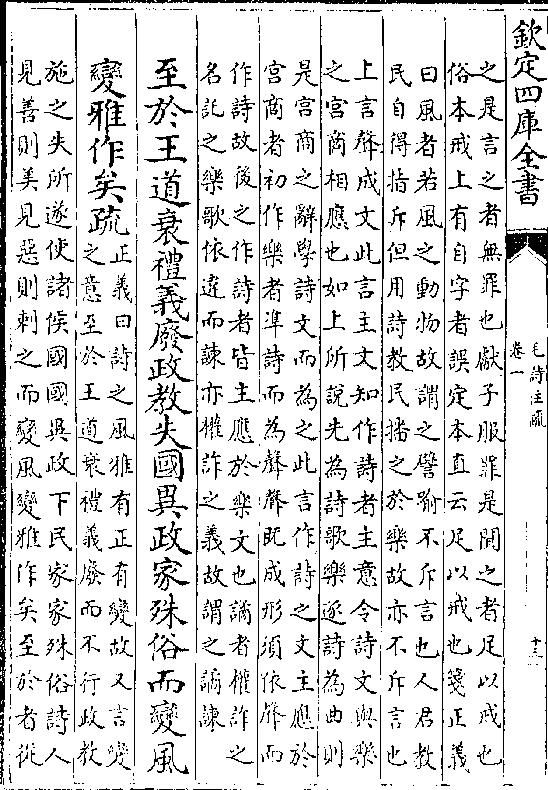 欽定四庫全書
毛詩注疏
卷一
十三
之是言之者無罪也獻子服罪是聞之者足以戒也
俗本戒上有自字者誤定本直云足以戒也箋正義
曰風者若風之動物故謂之譬喻不斥言也人君教
民自得指斥但用詩教民播之於樂故亦不斥言也
上言聲成文此言主文知作詩者主意令詩文與樂
之宮商相應也如上所說先為詩歌樂逐詩為曲則
是宮商之辭學詩文而為之此言作詩之文主應於
宮商者初作樂者準詩而為聲聲既成形須依聲而
作詩故後之作詩者皆主應於樂文也譎者權詐之
名託之樂歌依違而諫亦權詐之義故謂之譎諫
至於王道衰禮義廢政教失國異政家殊俗而變風
變雅作矣疏
正義曰詩之風雅有正有變故又言變
之意至於王道衰禮義廢而不行政教
施之失所遂使諸侯國國異政下民家家殊俗詩人
見善則美見惡則刺之而變風變雅作矣至於者從